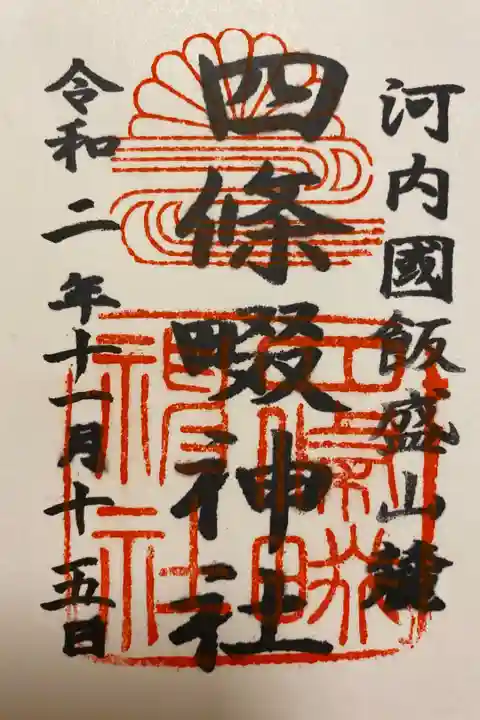 河内國飯盛山麓
四條畷神社
令和二年十一月十五日